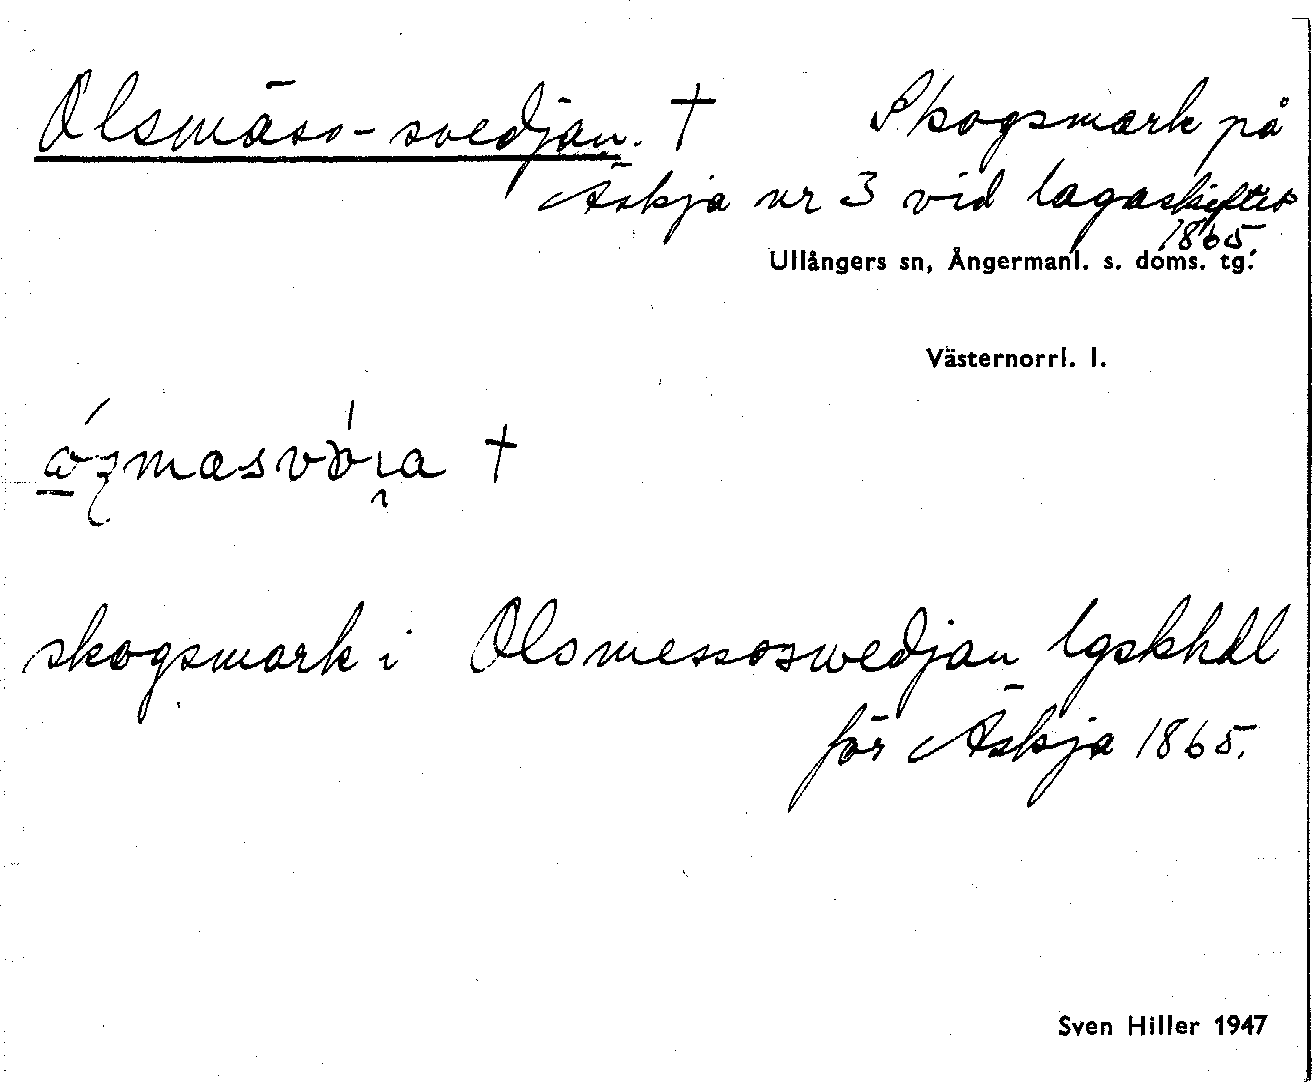 Olsmäss-svedjan. † Skogsmark på
Äskja nr 3 vid lagaskiftet
1865.
Ullångers sn, Ångermanl. s. doms. tg.
Västernorrl. l.
†
skogsmark i Olsmessoswedjan lgskhdl
för Äskja 1865.
Sven Hiller 1947